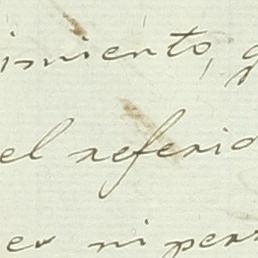 imiento, g
el referid
er ni pers